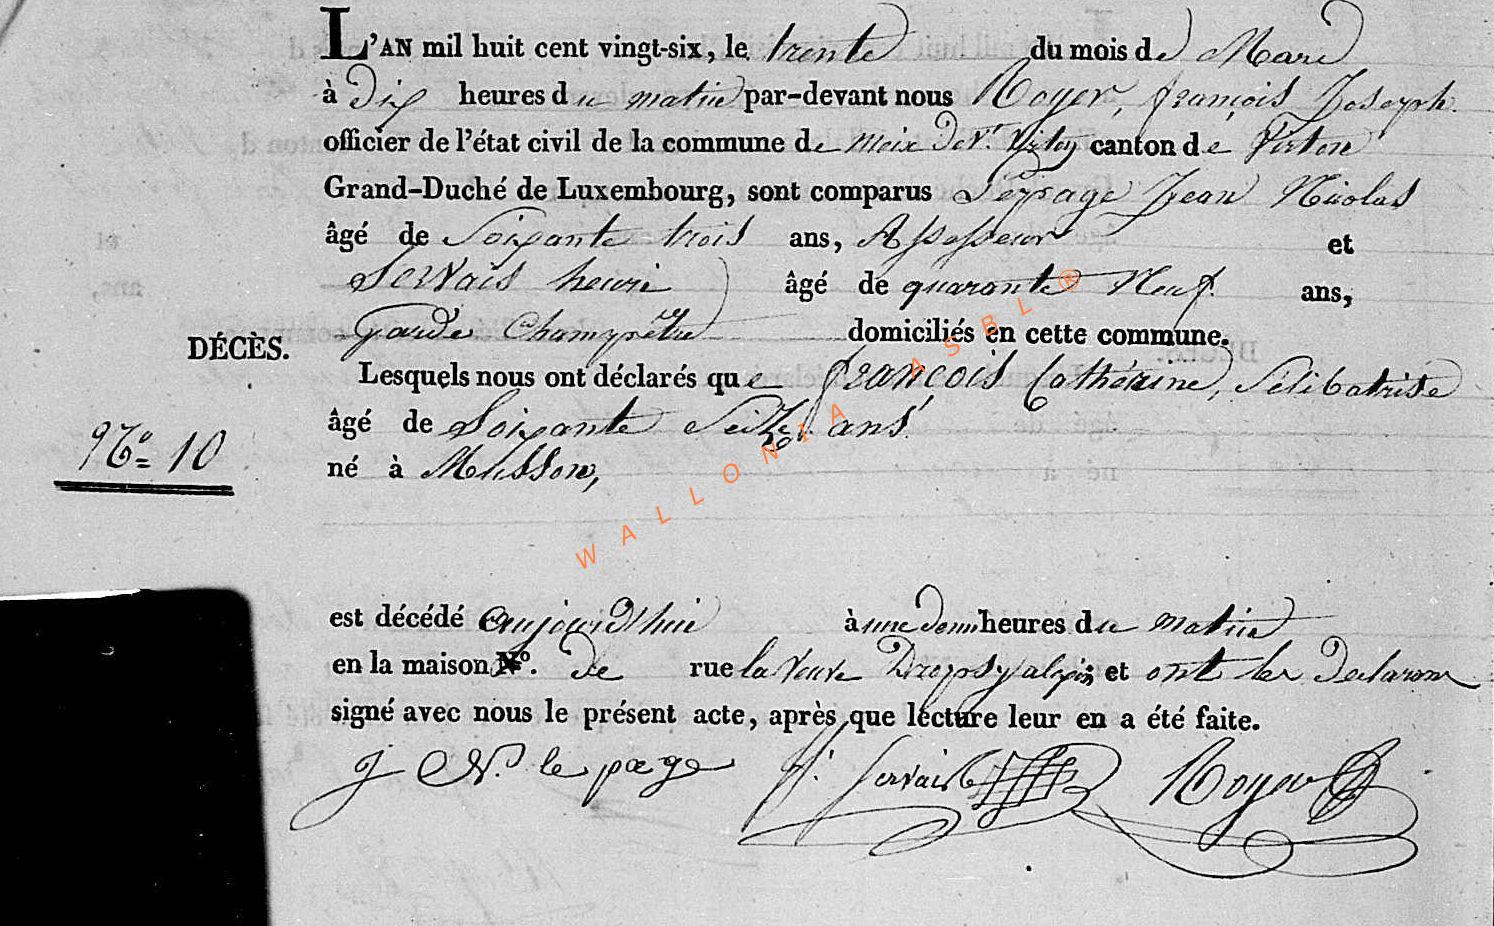 L'AN mil huit cent vingt-six, le trente du mois de Mars
à dix heures du matin par-devant nous Royer, françois Joseph
officier de l'état civil de la commune de meix Dvt. Virton canton de Virton
Grand-Duché de Luxembourg, sont comparus Lepage Jean Nicolas
âgé de Soixante trois ans, Assesseur et
Servais henri âgé de quarante Neuf ans,
Garde Champêtre domiciliés en cette commune.
DÉCÈS.
Lesquels nous ont déclarés que françois Cathérine, Selibatrise
âgé de Soixante Seize ans
No. 10
né à Musson,
est décédé aujourd'hui à une demi heures du matin
en la maison No. de rue la Veuve Dropsy et ont les Declarans
signé avec nous le présent acte, après que lecture leur en a été faite.
j N. le page h. servais Royer
WALLONIA ASBL ®